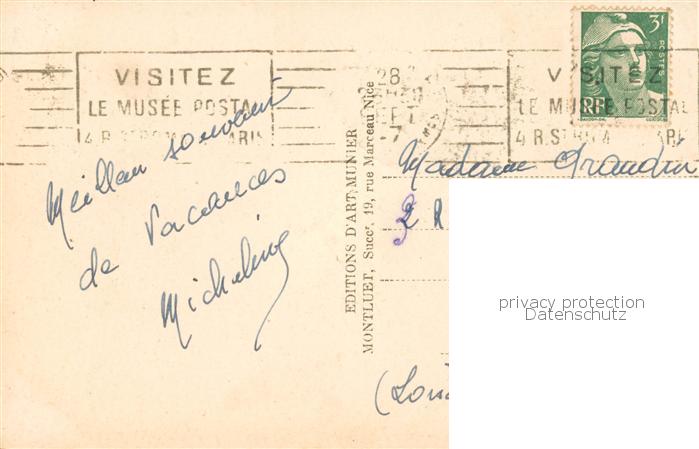 VISITEZ
LE MUSÉE POSTAL
4 R. ST ROMAIN PARIS
28
VISITEZ
LE MUSÉE POSTAL
4 R. ST RO PARIS
3F
POSTES
RF
Meilleur souvenir
de vacances
Micheline
EDITIONS D'ART MUNIER
MONTLUET, Succr, 19, rue Marceau Nice
Madame Grandin
2 R
3
privacy protection
Datenschutz